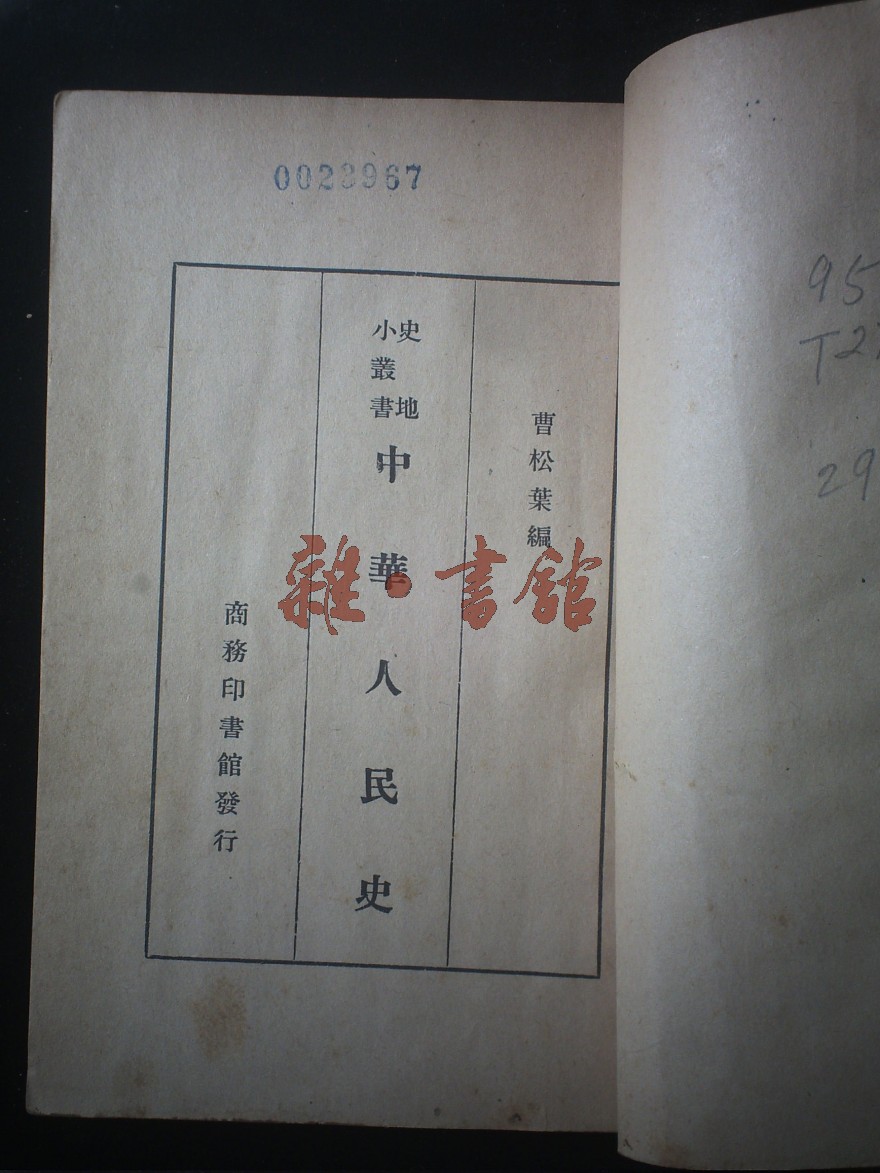 0023967
曹松葉編
史地
小叢書
中華人民史
商務印書館發行
雜·書館
95
T2
29